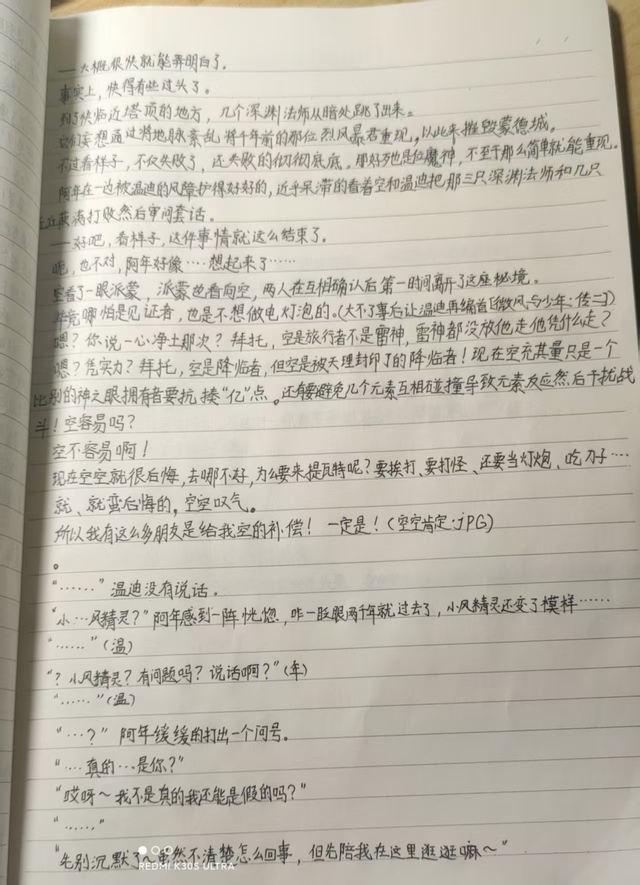 ——大概很快就能弄明白了。
事实上，快得有些过头了。
到了快临近塔顶的地方，几个深渊法师从暗处跳了出来。
它们妄想通过将地脉紊乱将千年前的那位烈风暴君重现，以此来摧毁蒙德城。
不过看样子，不仅失败了，还失败的彻彻底底。那好歹也是位魔神，不至于那么简单就能重现。
阿年在一边被温迪的风障护得好好的，近乎呆滞的看着空和温迪把那三只深渊法师和几只
丘丘萨满打败然后审问套话。
——好吧，看样子，这件事情就这么结束了。
呃，也不对，阿年好像……想起来了……
空看了一眼派蒙，派蒙也看向空，两人在互相确认后第一时间离开了这座秘境。
毕竟哪怕是见证者，也是不想做电灯泡的。(大不了事后让温迪再编首[微风与少年：传二])
嗯？你说一心净土那次？拜托，空是旅行者不是雷神，雷神都没放他走他凭什么走？
嗯？凭实力？拜托，空是降临者，但空是被天理封印了的降临者！现在空充其量只是一个
比别的神之眼拥有者要抗揍“亿”点。还有要避免几个元素互相碰撞导致元素反应然后干扰战
斗！空容易吗？
空不容易啊！
现在空空就很后悔，去哪不好，为么要来提瓦特呢？要挨打、要打怪、还要当灯炮、吃刀子……
就、就蛮后悔的，空空叹气。
所以我有这么多朋友是给我空的补偿！一定是！(空空肯定.jpG)
。
“……”温迪没有说话。
“小…风精灵？”阿年感到一阵恍惚，咋一眨眼两千年就过去了，小风精灵还变了模样……
“……”(温)
“？小风精灵？有问题吗？说话啊？”(年)
“……”(温)
“…？”阿年缓缓的打出一个问号。
“…真的…是你？”
“哎呀~我不是真的我还能是假的吗？”
“……”
“先别沉默了~虽然不清楚怎么回事，但先陪我在这里逛逛嘛~”
REDMI K30S ULTRA